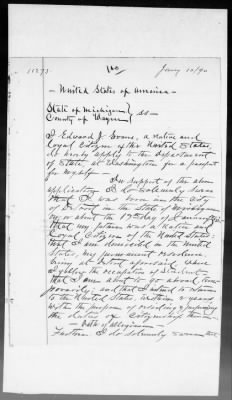 11273.
100
Jany 10/90
- United States of America -
State of Michigan } ss -
County of Wayne
I Edward J. Evans, a Native and
Loyal Citizen of the United States,
do hereby apply to the Department
of State at Washington for a passport
for myself -
In support of the above
application I do solemnly swear
that I was born in the City
of in the State of Michigan
on or about the 17th day of January
that my father was a Native and
Loyal Citizen of the United States;
that I am domiciled in the United
States, my permanent residence
being at Detroit aforesaid where
I follow the occupation of Student
that I am about to go abroad tem-
porarily; and that I intend to return
to the United States within 2 years
with the purpose of residing & performing
the duties of Citizenship therein -
- Oath of Allegiance -
Further I do solemnly swear that